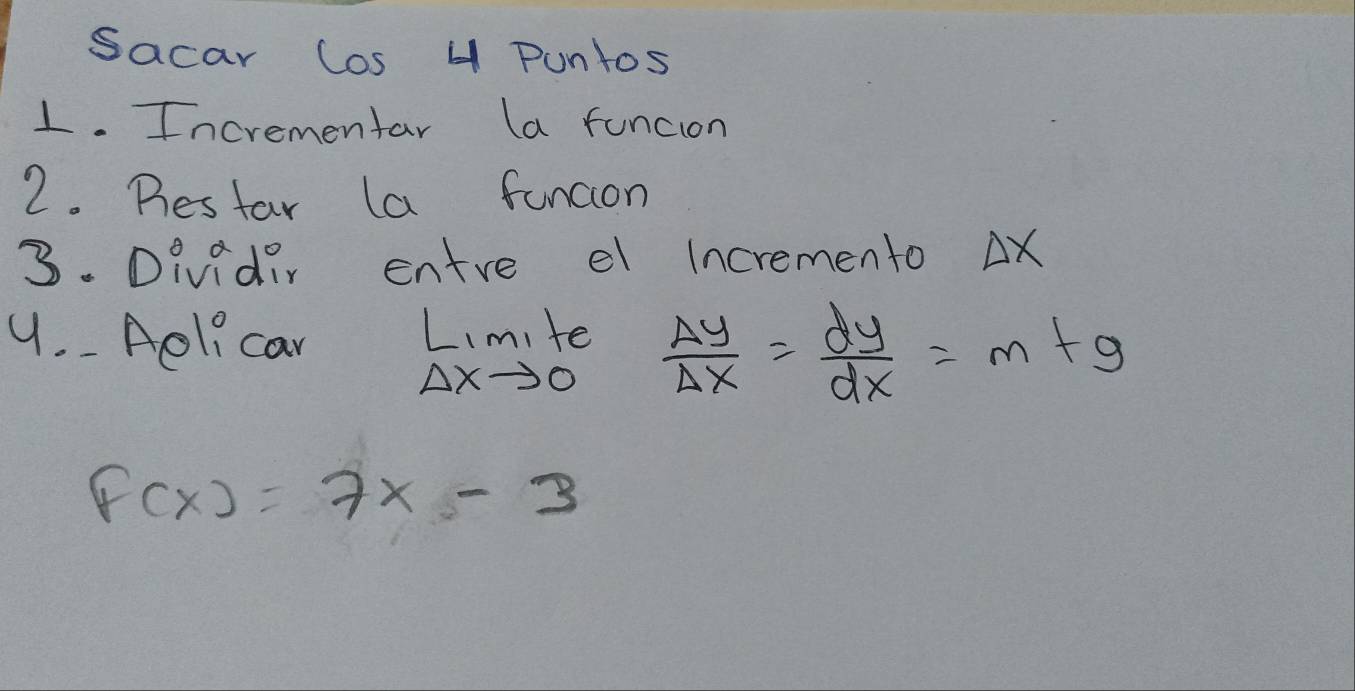 Sacar los 4 Puntos
1. Incrementar la funcion
2. Restar la funcion
3. Dividir entre el Incremento ΔX
4.- Aplicar Limite Δy/ΔX = dy/dx = m t g
ΔX→0
F(x) = 7x - 3